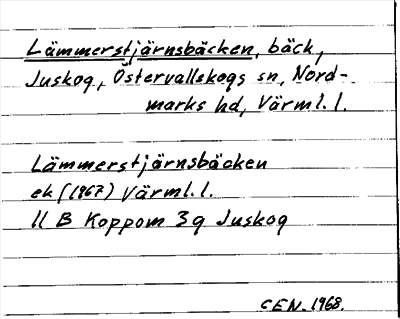 Lämmerstjärnsbäcken, bäck,
Juskog, Östervallskogs sn, Nord-
marks hd, Värml. l.
Lämmerstjärnsbäcken
ek (1967) Värml. l.
11 B Koppom 3g Juskog
CEN. 1968.